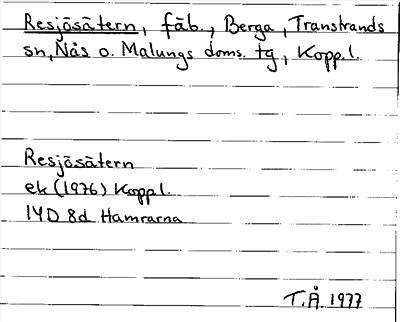 Resjösätern, fäb., Berga, Transtrands
sn, Nås o. Malungs doms. tg, Kopp.l.
Resjösätern
ek (1976) Koppl.
14D 8d Hamrarna
T.Å 1977